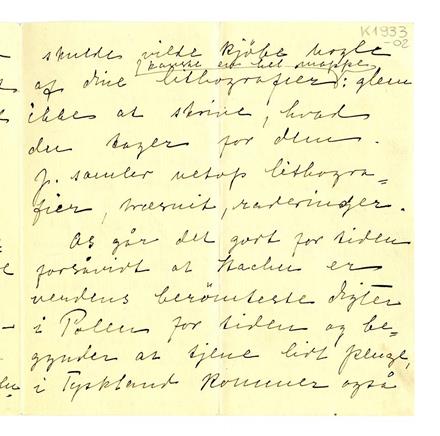 K1933
-02
skulde vilde kjøbe nogle
(kanske en hel mappe)
af dine lithografier: glem
ikke at skrive, hvad
du tager for dem.
J. samler netop lithogra-
fier, træsnit, raderinger.
Os går det godt for tiden
forsåvidt at Stachu er
verdens berömteste digter
i Polen for tiden og be-
gynder at tjene lidt penge,
i Tyskland kommer også